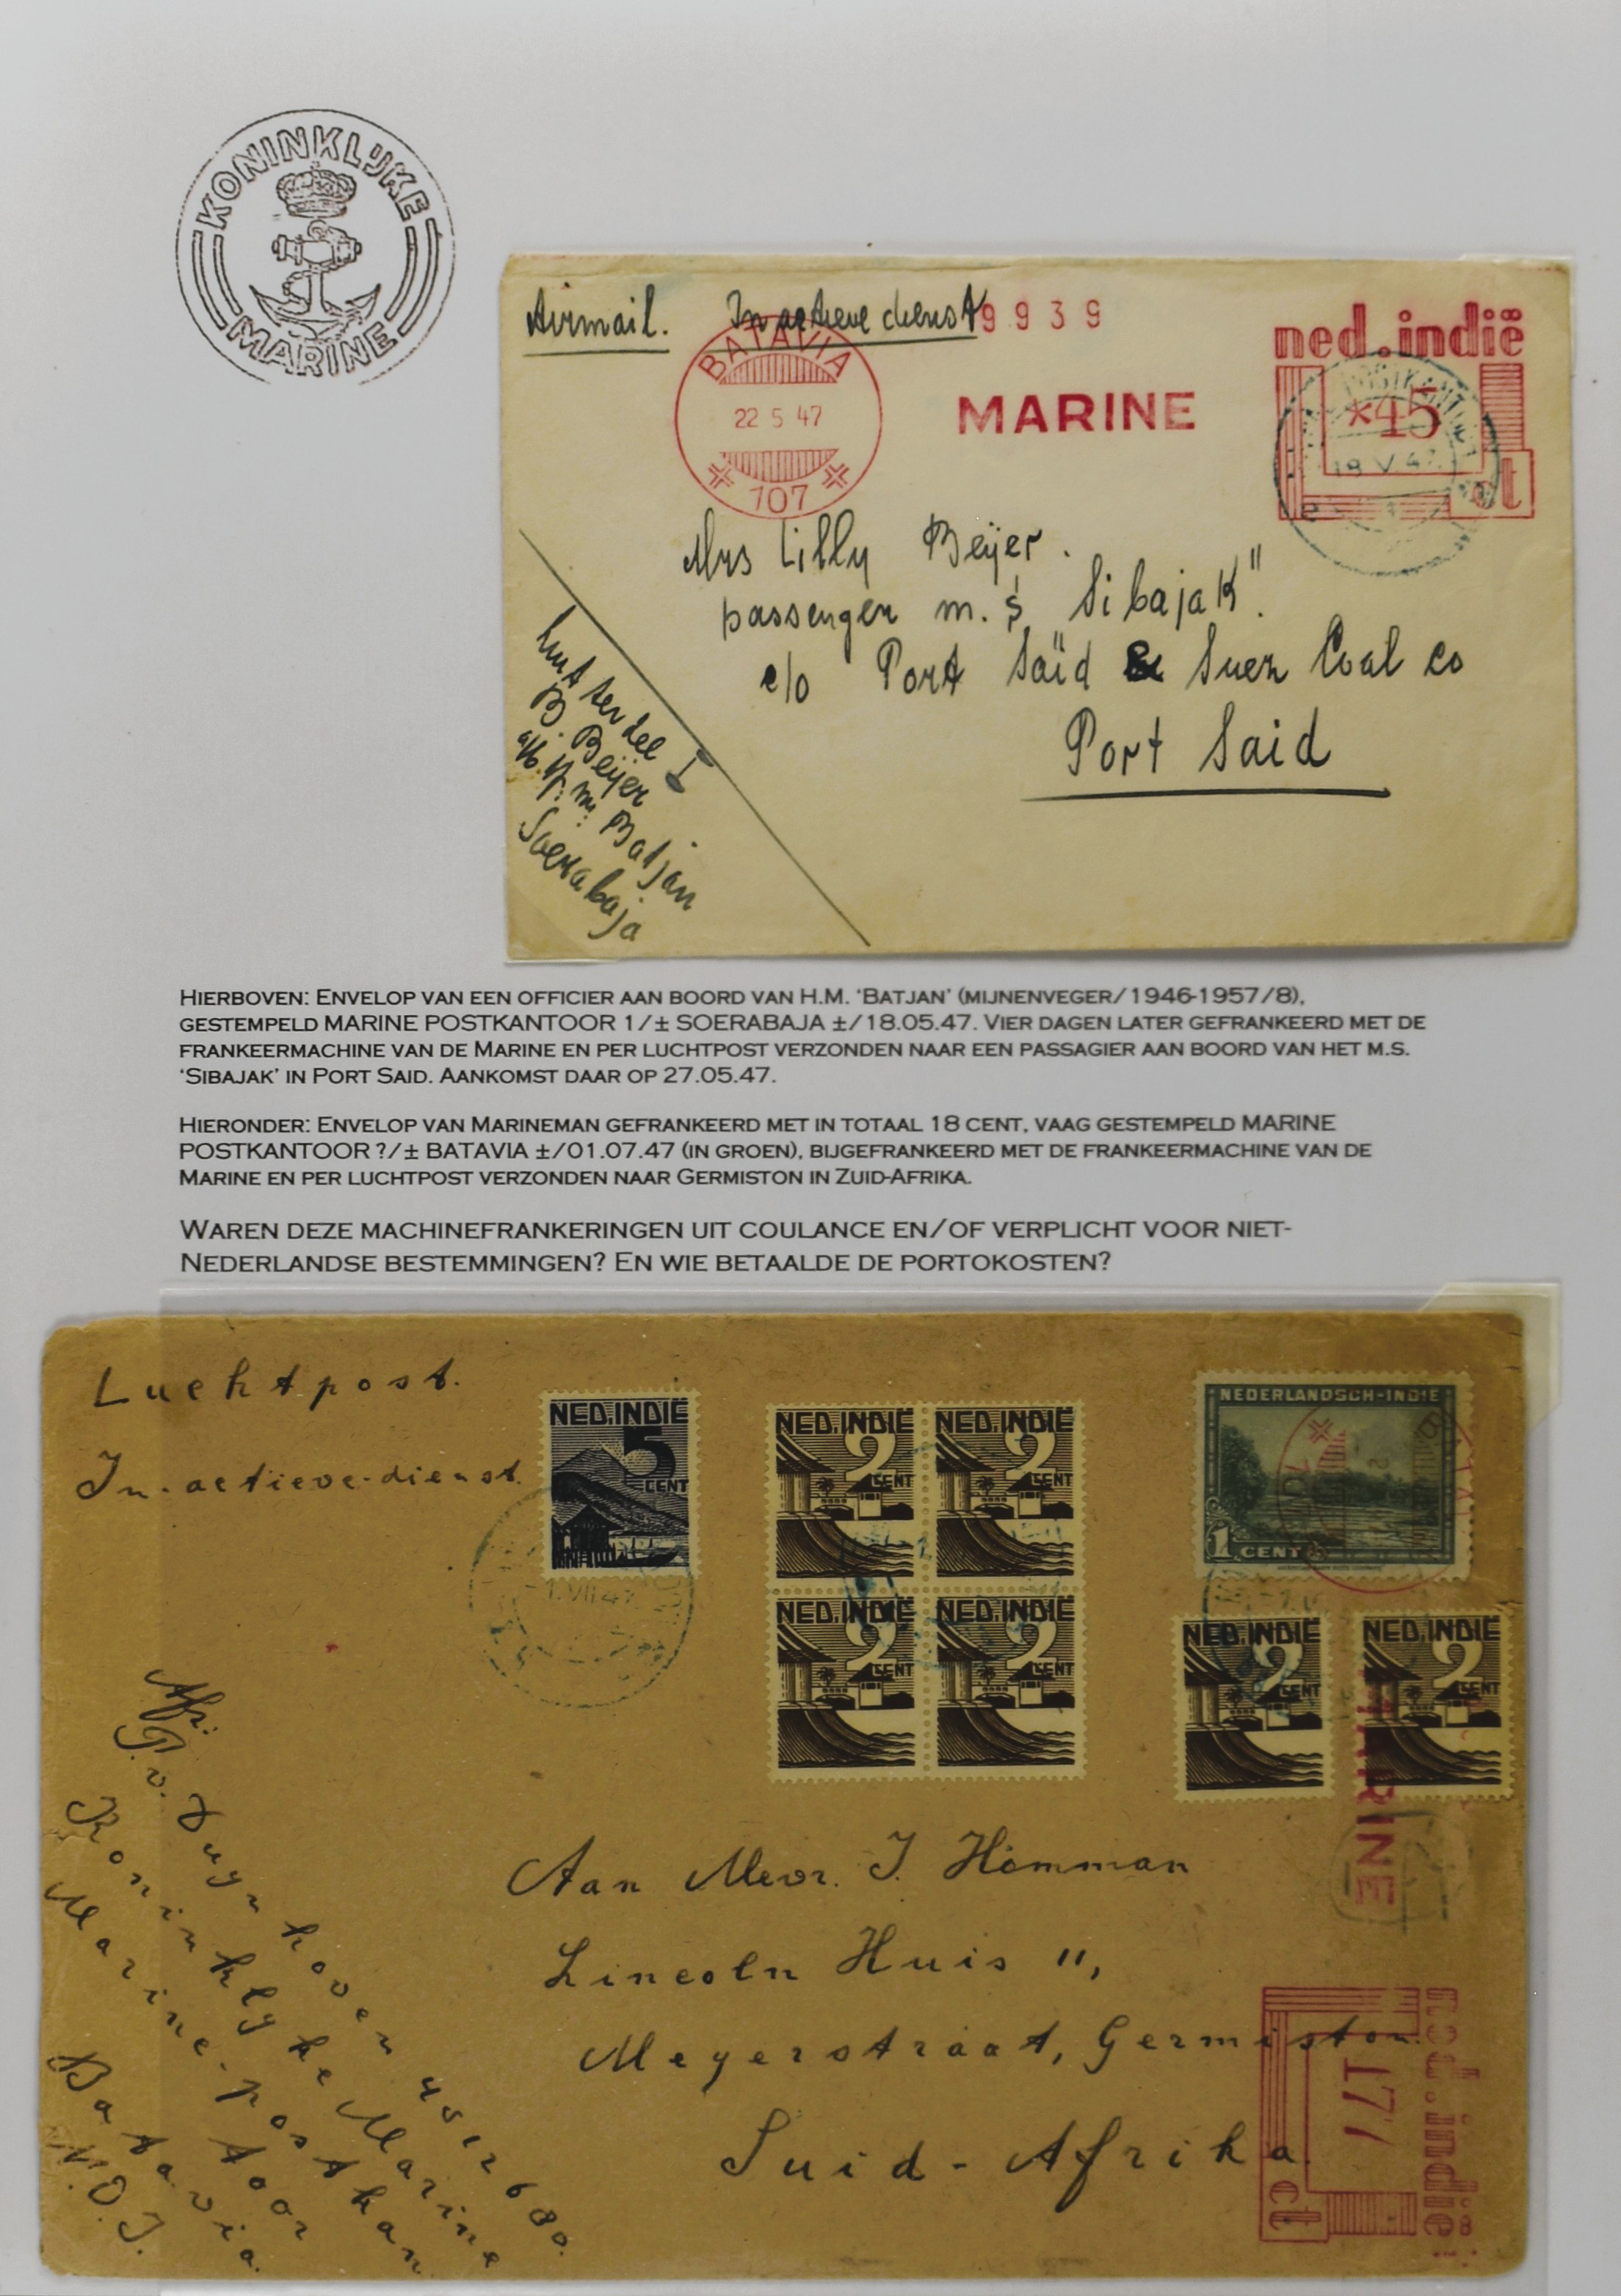 KONINKLIJKE
MARINE
Airmail. In actieve dienst 9939
BATAVIA
22 5 47
107
MARINE
ned.indië
*45
ct
18 V 47
Mrs Lilly Beÿer.
passenger m.s "Sibajak".
c/o Port Saïd & Suez Coal co
Port Said
B. Beÿer
Batjan
Soerabaja
HIERBOVEN: ENVELOP VAN EEN OFFICIER AAN BOORD VAN H.M. ‘BATJAN’ (MIJNENVEGER/1946-1957/8),
GESTEMPELD MARINE POSTKANTOOR 1/± SOERABAJA ±/18.05.47. VIER DAGEN LATER GEFRANKEERD MET DE
FRANKEERMACHINE VAN DE MARINE EN PER LUCHTPOST VERZONDEN NAAR EEN PASSAGIER AAN BOORD VAN HET M.S.
‘SIBAJAK’ IN PORT SAID. AANKOMST DAAR OP 27.05.47.
HIERONDER: ENVELOP VAN MARINEMAN GEFRANKEERD MET IN TOTAAL 18 CENT, VAAG GESTEMPELD MARINE
POSTKANTOOR ?/± BATAVIA ±/01.07.47 (IN GROEN), BIJGEFRANKEERD MET DE FRANKEERMACHINE VAN DE
MARINE EN PER LUCHTPOST VERZONDEN NAAR GERMISTON IN ZUID-AFRIKA.
WAREN DEZE MACHINEFRANKERINGEN UIT COULANCE EN/OF VERPLICHT VOOR NIET-
NEDERLANDSE BESTEMMINGEN? EN WIE BETAALDE DE PORTOKOSTEN?
Luchtpost.
In-actieve-dienst.
NED.INDIË
5
CENT
NED.INDIË
2
CENT
NED.INDIË
2
CENT
NED.INDIË
2
CENT
NED.INDIË
2
CENT
NEDERLANDSCH-INDIE
1 CENT
NED.INDIË
2
CENT
NED.INDIË
2
CENT
1.VII 47
MARINE
Afz:
P. v. Duynhoven 4512680.
Koninklyke Marine
Marine-postkan
toor
Batavia.
N.O.I.
Aan Mevr. J. Homman
Lincoln Huis 11,
Meyerstraat, Germiston.
Suid-Afrika.
ned.indië
177
ct